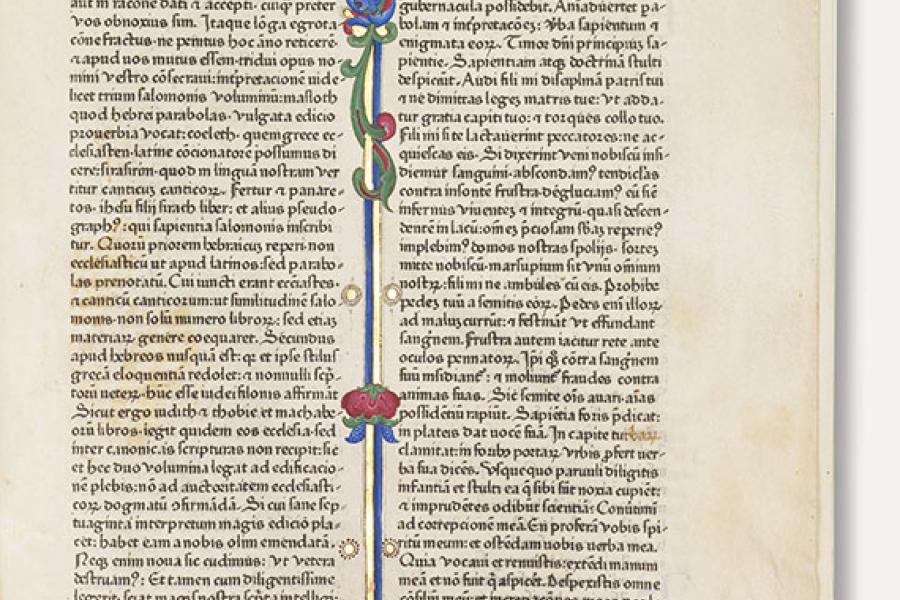 aut in racōne dati ⁊ accepti· cuiꝗ preter
vos obnoxius sim. Itaque lōga egrota-
cōne fractus·ne penitus hoc āno reticerē
⁊ apud uos mutus essem·tridui opus no-
mini vestro cōsecraui:intpretacionē uide-
licet trium salomonis voluminū:masloth
quod hebrei parabolas· vulgata edicio
prouerbia vocat:coeleth· quem grece ec-
clesiasten·latine cōcionatorē possumus di
cere:sirasirim·quod in linguā nostram ver
titur canticū canticoꝝ. Fertur ⁊ panare-
tos· ihesu filij sirach liber: et alius pseudo-
graphꝰ: qui sapientia salomonis inscribi
tur. Quorū priorem hebraicuꝫ reperi·non
ecclesiasticū ut apud latinos:sed parabo-
las prenotatū. Cui iuncti erant ecclesiastes·
⁊ canticū canticorum:ut similitudinē salo
monis·non solū numero libroꝝ: sed etiaꝫ
materiaꝝ genere coequaret. Secundus
apud hebreos nusquā est: quia et ipse stilus
grecā eloquentiā redolet: ⁊ nonnulli scp̄-
torū veteꝝ·hūc esse iudei filonis affirmāt
Sicut ergo iudith ⁊ thobie et machabe-
orū libros·legit quidem eos ecclesia·sed
inter canonicas scripturas non recipit:sic
et hec duo volumina legat ad edificacio-
nē plebis:nō ad auctoritatem ecclesiasti-
coꝝ dogmatū ꝯfirmādā. Si cui sane sep-
tuaginta interpretum magis edicio pla-
cet: habet eam a nobis olim emendatā.
Neqꝫ enim noua sic cudimus: ut vetera
destruamꝰ: Et tamen cum diligentissime
legerit·sciat magis nostra scp̄ta intelligi:
gubernacula possidebit. Aniaduertet pa-
bolam ⁊ int̄pretacōeꝫ: Vba sapientum ⁊
enigmata eoꝝ. Timor dn̄i principiuꝫ sa-
pientie. Sapientiam atqꝫ doctrinā stulti
despiciūt. Audi fili mi disciplinā patris tui
⁊ ne dimittas legeꝫ matris tue: vt adda-
tur gratia capiti tuo: ⁊ torques collo tuo.
Fili mi si te lactauerint peccatores:ne ac-
quiescas eis. Si dixerint veni nobiscū insi-
diemur sanguini·abscondamꝰ tendiclas
contra insontē frustra·degluciamꝰ eū sic
infernus viuenteꝫ ⁊ integrū·quasi descen-
dentē in lacū:omēꝫ p̄ciosam sb̄aꝫ reperieꝰ
implebimꝰ domos nostras spolijs· sorteꝫ
mitte nobiscū·marsupium sit vnū omnium
nostꝝ:fili mi ne ambules cū eis. Prohibe
pedeꝫ tuū a semitis eoꝝ. Pedes eni illoꝝ
ad maluꝫ currūt: ⁊ festināt vt effundant
sangnem. Frustra autem iacitur rete ante
oculos pennatoꝝ. Ipi ꝗꝫ cōtra sangnem
suū insidiantꝰ: ⁊ moliunt fraudes contra
animas suas. Sic semite ois auari·aīas
possidētiū rapiūt. Sapiētia foris p̄dicat:
in plateis dat uocē suā. In capite turbaꝝ
clamitat:in foribꝫ portaꝝ vrbis ꝓfert uer-
ba sua dicēs. Vsquequo paruuli diligitis
infantiā et stulti ea q̄ sibi sūt noxia cupiēt:
⁊ imprudētes odibūt scientiā: Conutimī
ad correpcionē meā. En proferā vobis spi-
ritū meum: et ostēdam uobis verba mea.
Quia vocaui et rennistis: extēdi manum
meā et nō fuit q̄ aspicet. Despexistis omne